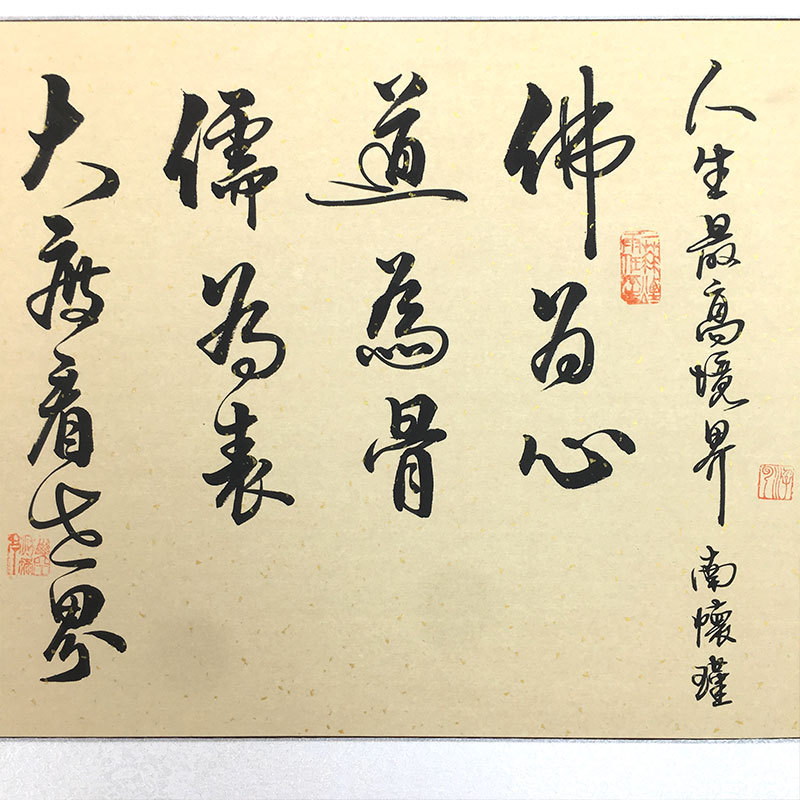 人生最高境界 南懷瑾
佛为心
道為骨
儒为表
大度看世界